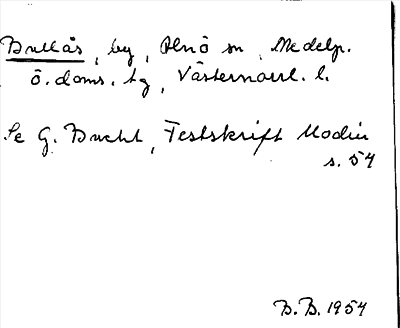 Bullås, by, Alnö sn, Medelp.
ö. doms. tg, Västernorrl. l.
Se G. Bucht, Festskrift Modin
s. 54
B.B. 1954